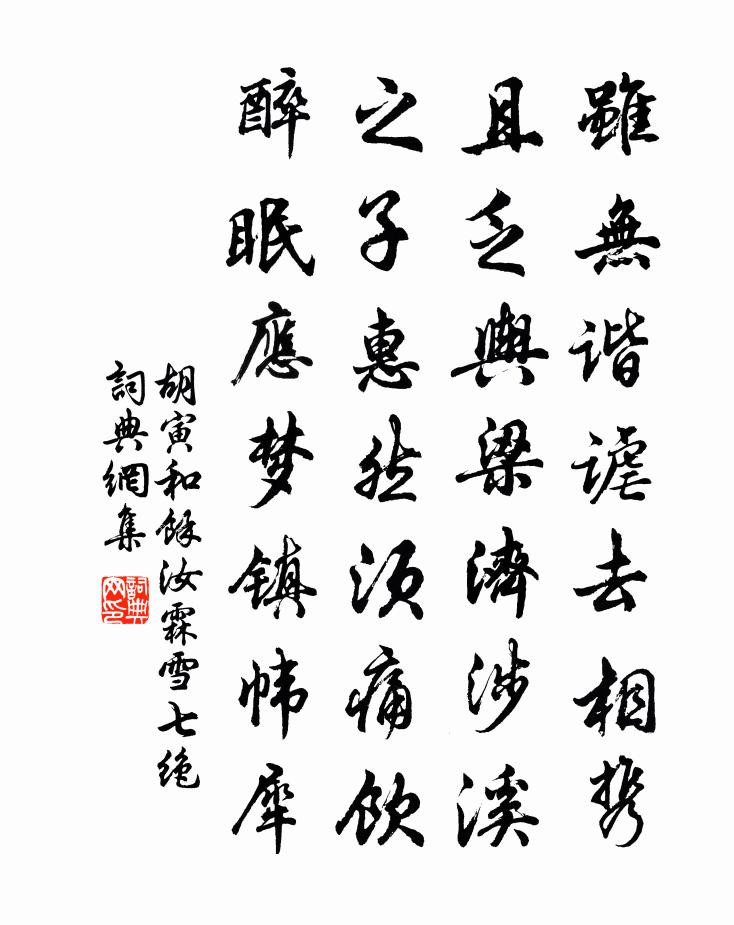 雖無諧謔去相携
且乏輿梁濟涉溪
之子惠然須痛飲
醉眠應梦镇帏犀
胡寅和餘汝霖雪七绝
詞典網集
詞典網印